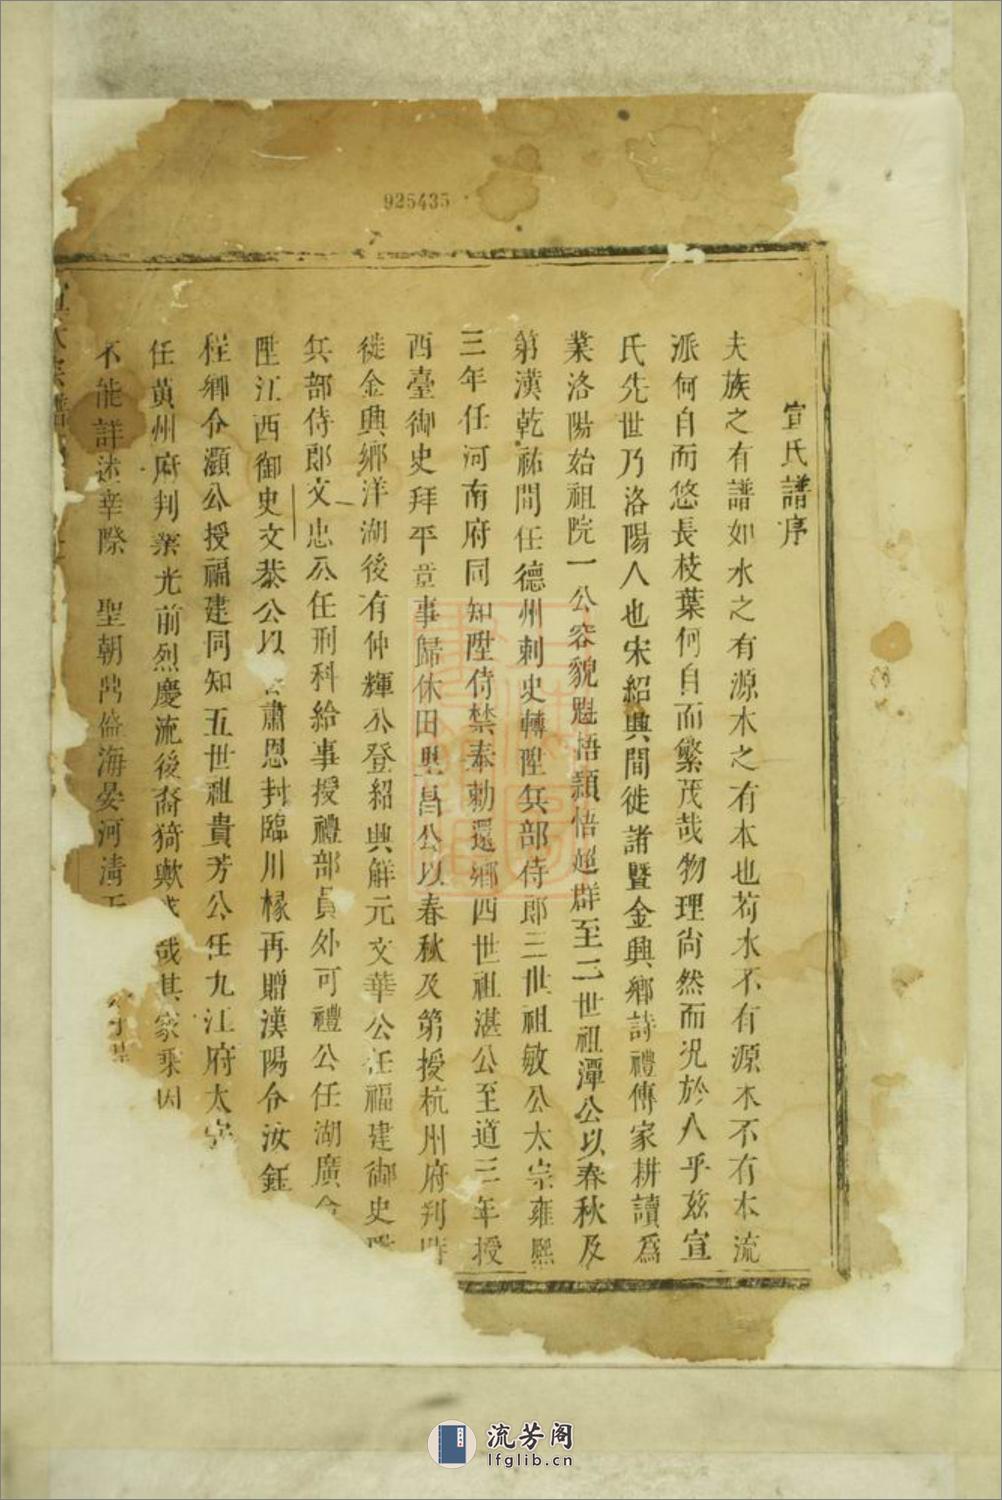 925435
宣氏譜序
夫族之有譜如水之有源木之有本也茍水不有源木不有本流
派何自而悠長枝葉何自而繁茂哉物理尚然而況於人乎茲宣
氏先世乃洛陽人也宋紹興間徙諸暨金興鄉詩禮傳家耕讀為
業洛陽始祖院一公容貌魁梧穎悟超群至二世祖潭公以春秋及
第漢乾祐間任德州刺史轉陞兵部侍郎三世祖敏公太宗雍熙
三年任河南府同知陞侍禁奉勅還鄉四世祖湛公至道三年授
西臺御史拜平章事歸休田里昌公以春秋及第授杭州府判
徙金興鄉洋湖後有仲輝公登紹興解元文華公任福建御史
兵部侍郎文忠公任刑科給事授禮部員外可禮公任湖廣
陞江西御史文恭公以 肅恩封臨川椽再贈漢陽令汝鈺
程鄉令灝公授福建同知五世祖貴芳公任九江府太
任黃州府判業光前烈慶流後裔猗歟 哉其家乘因
不能詳述幸際 聖朝昌盛海晏河清
宗譜
流芳阁
lfglib.cn